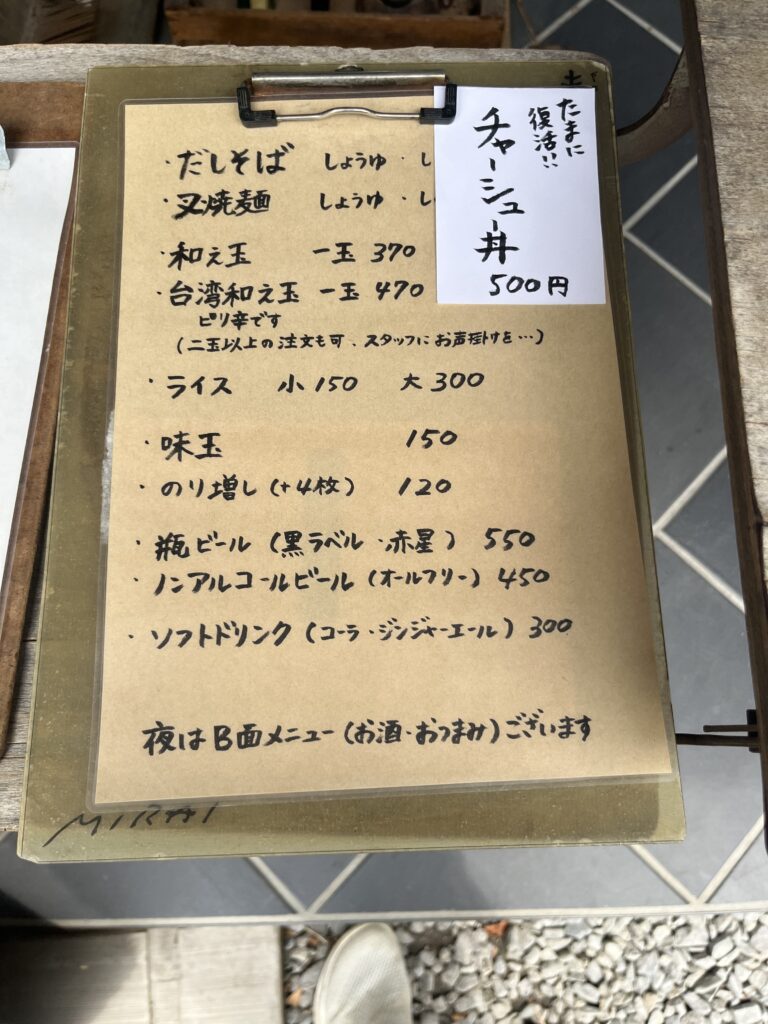 たまに
復活!!
チャーシュー丼
500円
・だしそば しょうゆ・し
・叉焼麺 しょうゆ・し
・和え玉 一玉 370
・台湾和え玉 一玉 470
ピリ辛です
(二玉以上の注文も可、スタッフにお声掛けを…)
・ライス 小 150 大 300
・味玉 150
・のり増し(+4枚) 120
・瓶ビール(黒ラベル・赤星) 550
・ノンアルコールビール(オールフリー) 450
・ソフトドリンク(コーラ・ジンジャーエール) 300
夜はB面メニュー(お酒・おつまみ)ございます
MIRAI